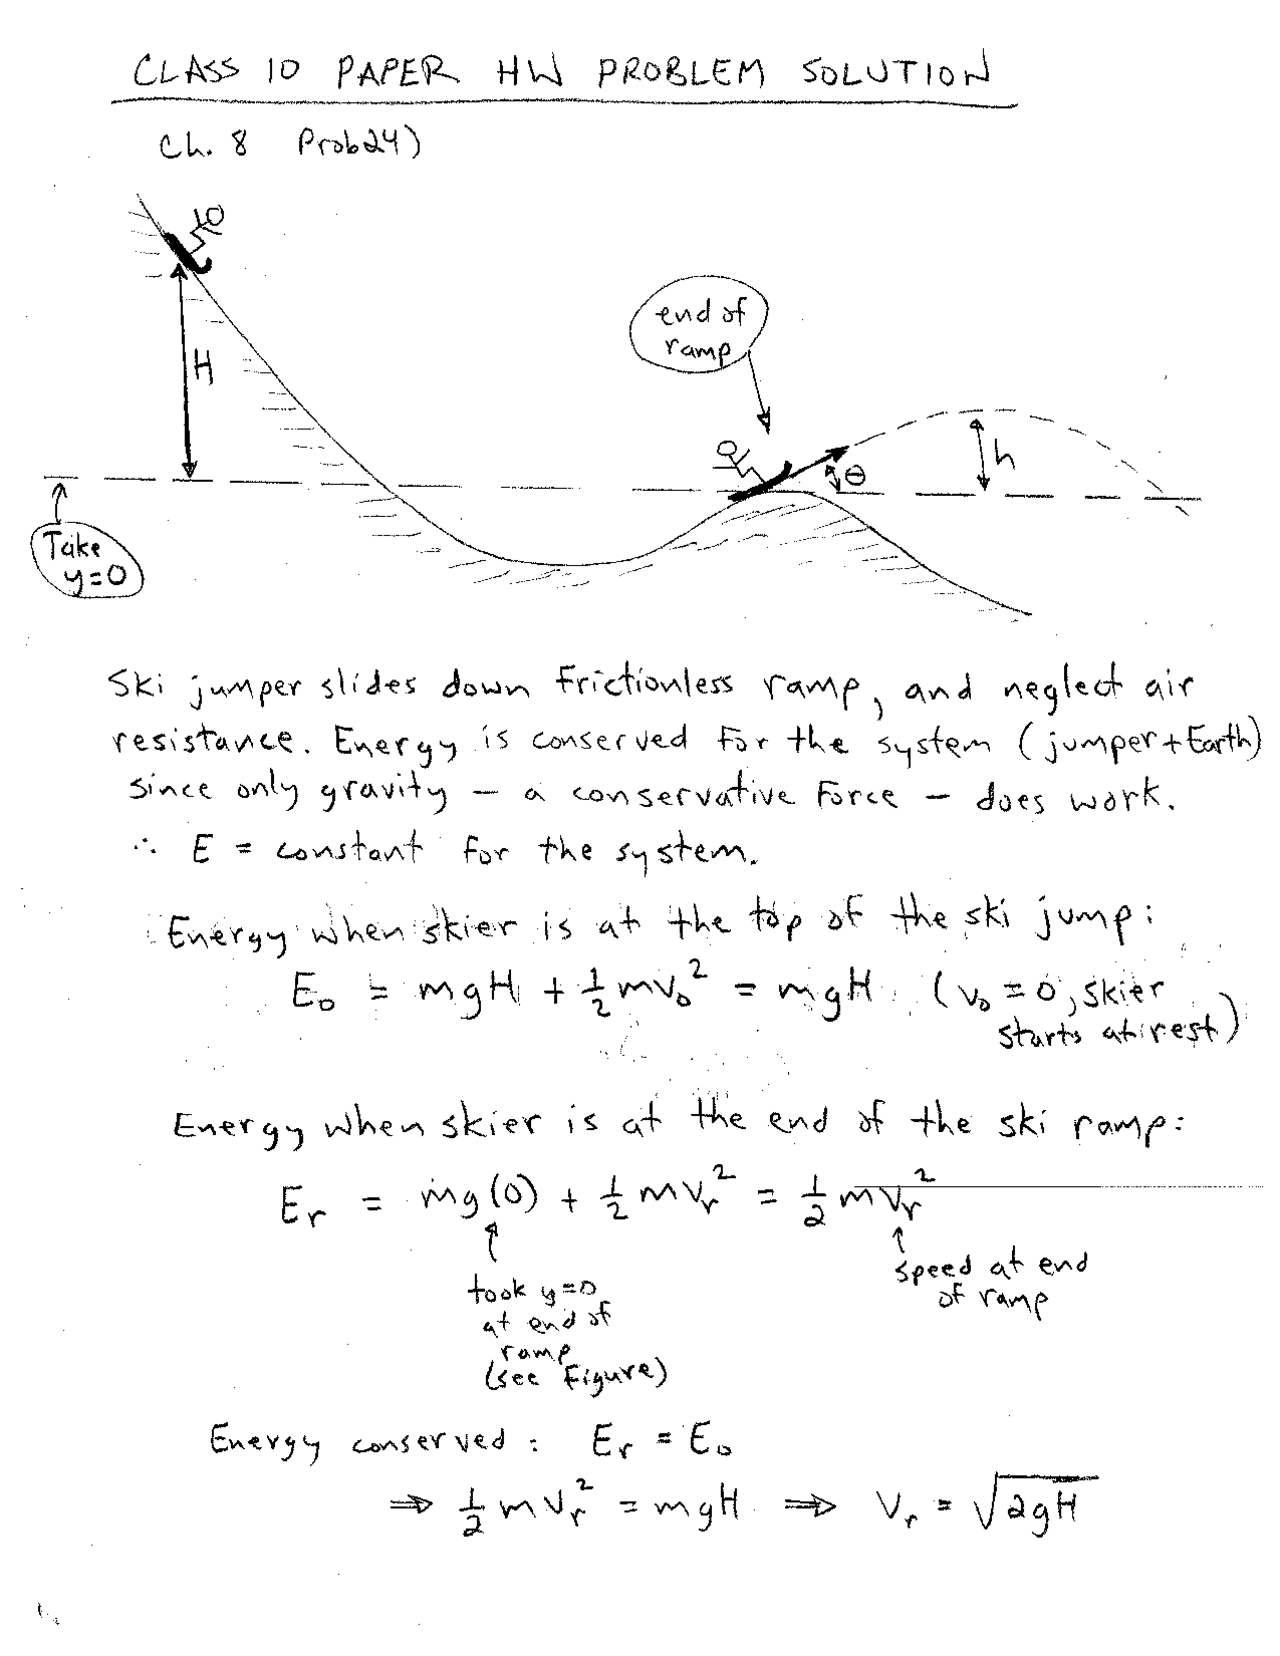 CLASS 10 PAPER HW PROBLEM SOLUTION
Ch. 8 Prob 24)
H
end of
ramp
θ
h
Take
y=0
Ski jumper slides down frictionless ramp, and neglect air
resistance. Energy is conserved for the system (jumper + Earth)
since only gravity – a conservative force – does work.
∴ E = constant for the system.
Energy when skier is at the top of the ski jump:
E₀ = mgH + ½mv₀² = mgH (v₀ = 0, skier
starts at rest)
Energy when skier is at the end of the ski ramp:
Eᵣ = mg(0) + ½mvᵣ² = ½mvᵣ²
took y=0
at end of
ramp
(see figure)
speed at end
of ramp
Energy conserved: Eᵣ = E₀
⇒ ½mvᵣ² = mgH ⇒ vᵣ = √2gH